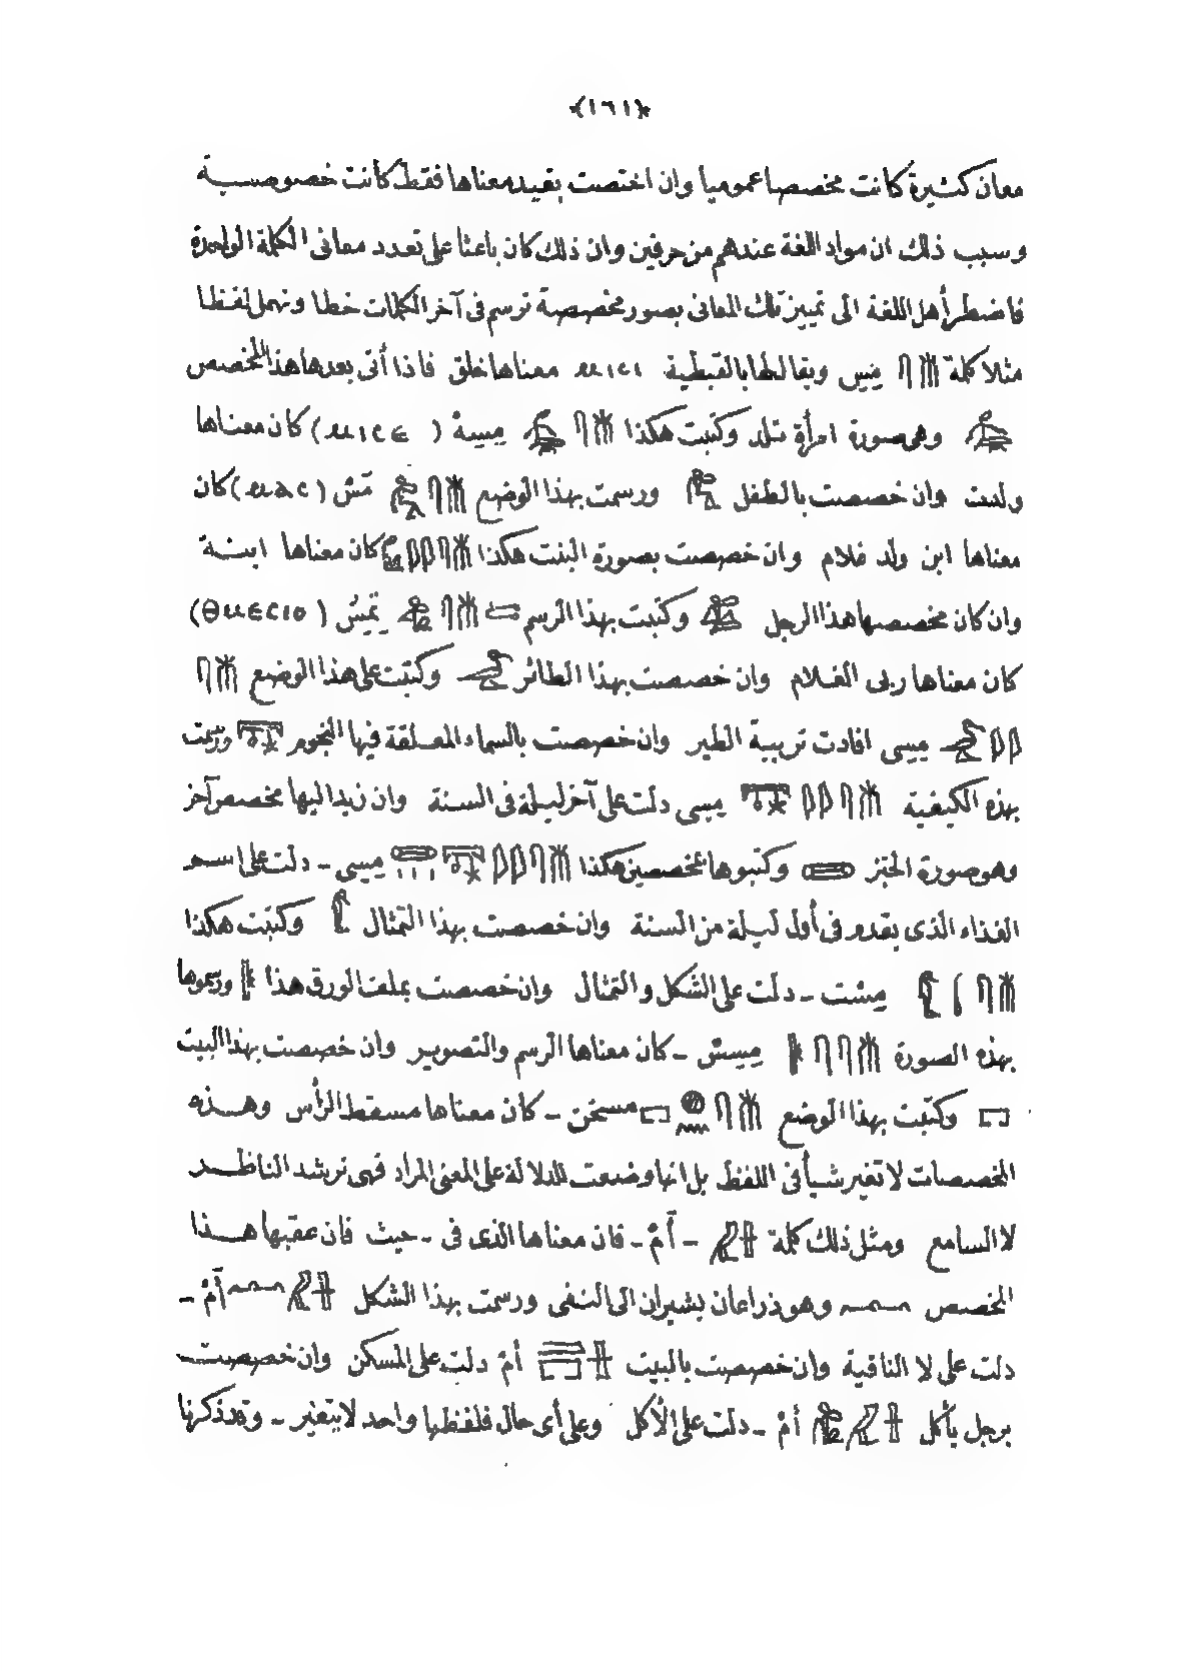 ﴿١٦١﴾
معان كثيرة كانت مخصصا عموميا وان اختصت بقيد معناها فقط كانت خصوصية
وسبب ذلك ان مواد اللغة عندهم من حرفين وان ذلك كان باعثا على تعدد معانى الكلمة الواحدة
فاضطر أهل اللغة الى تمييز تلك المعانى بصور مخصصة ترسم فى آخر الكلمات خطا وتهمل لفظا
مثلا كلمة 𓄟𓋴 مِس ويقال لها بالقبطية ⲙⲓⲥⲓ معناها خلق فاذا أتى بعدها هذا المخصص
وهى صورة امرأة تلد وكتبت هكذا 𓄟𓋴 مِسِهْ (ⲙⲓⲥⲉ) كان معناها
ولدت وان خصصت بالطفل ورسمت بهذا الوضع 𓄟𓋴𓀔 مَسْ (ⲙⲁⲥ) كان
معناها ابن ولد غلام وان خصصت بصورة البنت هكذا 𓄟𓋴𓇋𓇋 كان معناها ابنة
وان كان مخصصها هذا الرجل وكتبت بهذا الرسم 𓄟𓋴 (ⲑⲙⲉⲥⲓⲟ)
كان معناها ربى الغلام وان خصصت بهذا الطائر وكتبت على هذا الوضع 𓄟𓋴
𓇋𓇋 مِسِى افادت تربية الطير وان خصصت بالسماء المعلقة فيها النجوم ورسمت
بهذه الكيفية 𓄟𓋴𓇋𓇋 مِسِى دلت على آخر ليلة فى السنة وان زيد اليها مخصص آخر
وهو صورة الخبز وكتبوها بمخصصين هكذا 𓄟𓋴𓇋𓇋 مِسِى ـ دلت على اسم
الغذاء الذى يقدم فى أول ليلة من السنة وان خصصت بهذا التمثال 𓀾 وكتبت هكذا
𓄟𓋴 مِسْت ـ دلت على الشكل والتمثال وان خصصت بملف الورق هذا 𓏛 ورسموها
بهذه الصورة 𓄟𓋴𓋴𓏛 مِسِسْ ـ كان معناها الرسم والتصوير وان خصصت بهذا البيت
𓉐 وكتبت بهذا الوضع 𓄟𓋴𓐍𓈖𓉐 مسخن ـ كان معناها مسقط الرأس وهذه
المخصصات لا تغير شيأ فى اللفظ بل انها وضعت للدلالة على المعنى المراد فهى ترشد الناظر
لا السامع ومثل ذلك كلمة 𓇋𓅓 ـ أَمْ ـ فان معناها الذى فى ـ حيث فان عقبها هذا
المخصص 𓂜 وهو ذراعان يشيران الى النفى ورسمت بهذا الشكل 𓇋𓅓𓂜 أَمْ ـ
دلت على لا النافية وان خصصت بالبيت أَمْ دلت على المسكن وان خصصت
برجل يأكل 𓇋𓅓𓀁 أَمْ ـ دلت على الأكل وعلى أى حال فلفظها واحد لا يتغير ـ وقد ذكرنا